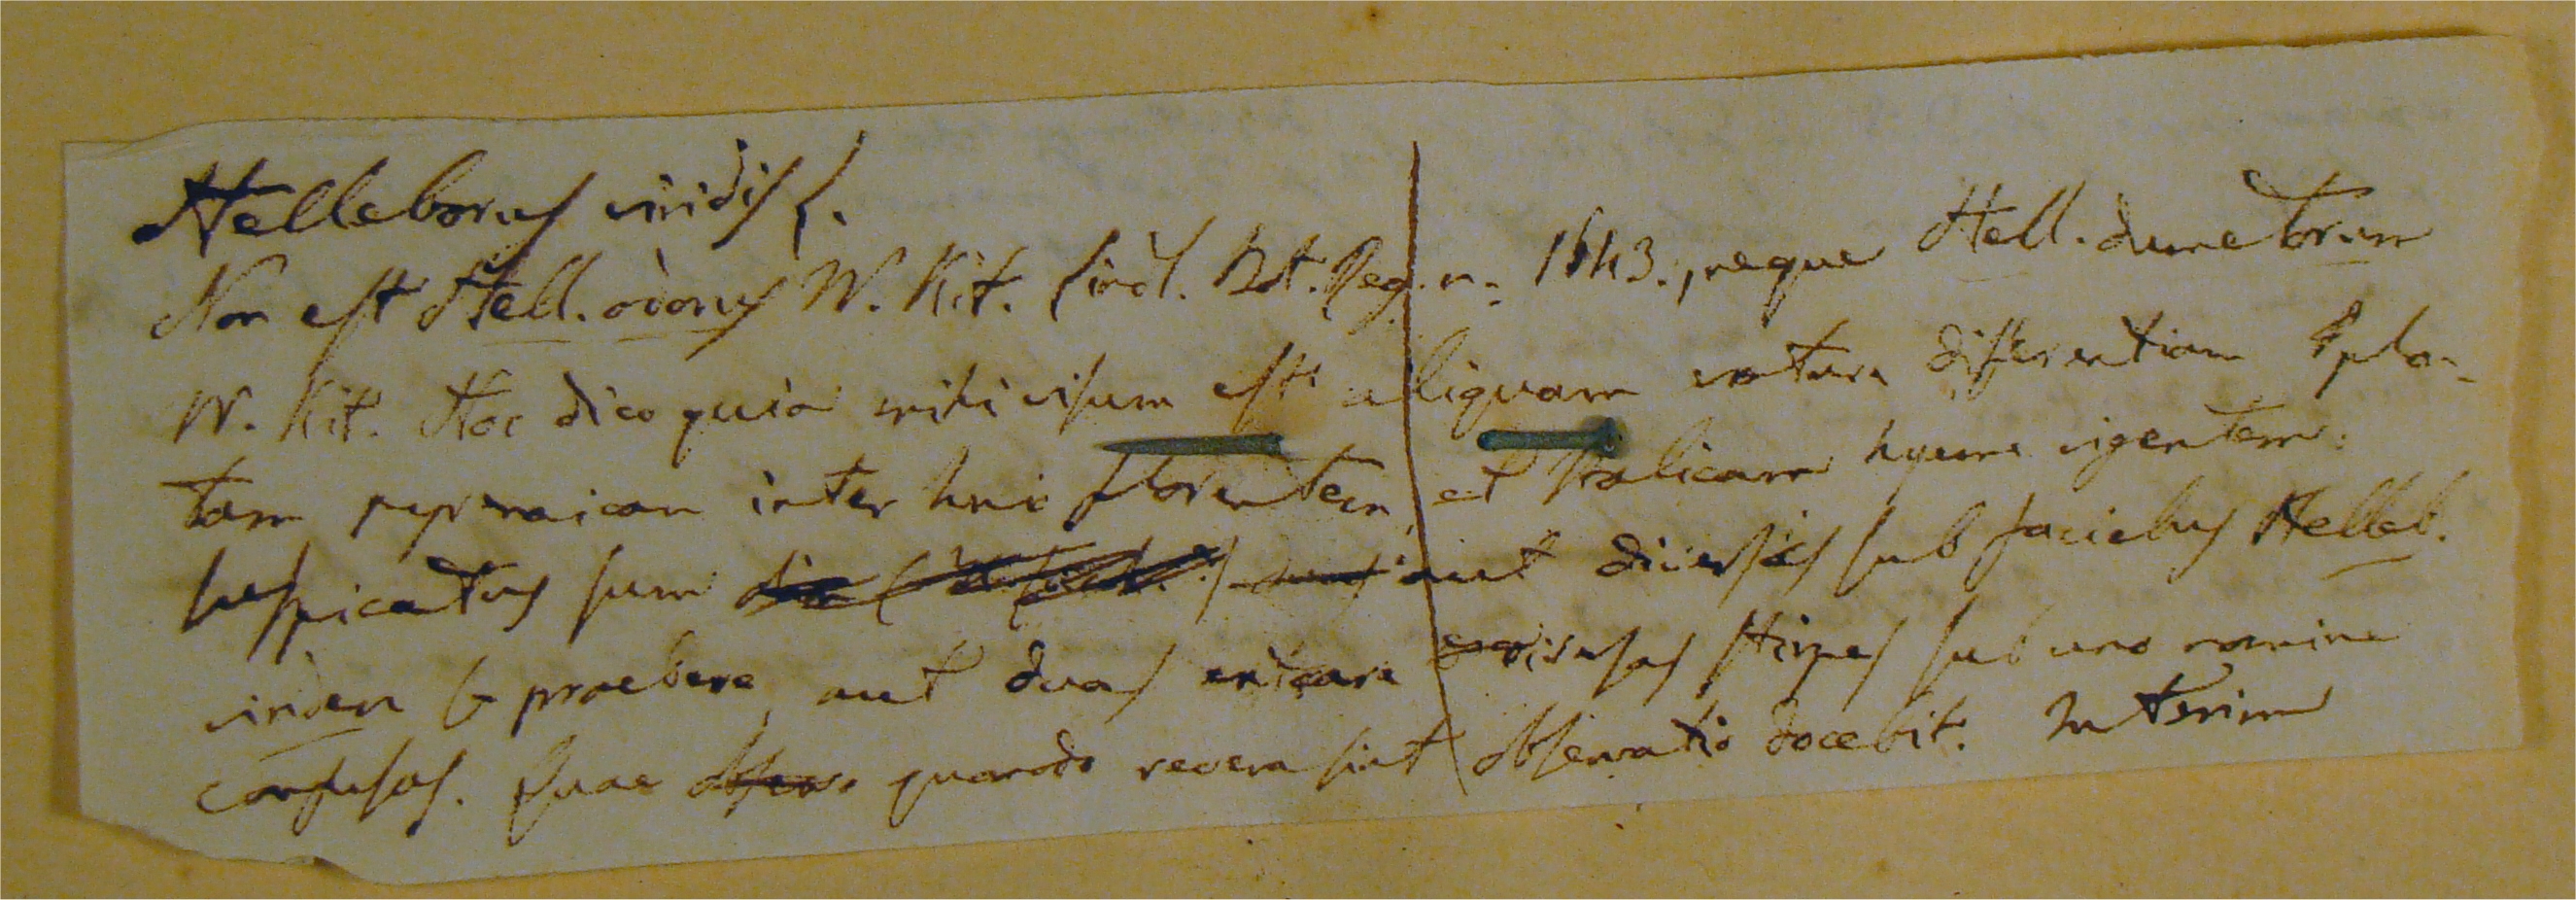 Helleborus viridis L.
Non est Hell. odorus W. Kit. Lindl. Bot. Reg. n. 1643., neque Hell. dumetorum
W. Kit. Hoc dico quia mihi visum est aliquam extare differentiam plan-
tam pyrenaicam inter hinc florentem, et italicam hyeme vigentem.
Suspicatus sum aut diversis sub faciebus Helleb.
viridem se praebere, aut duas diversas stirpes sub uno nomine
confusas. Quae quando revera sint observatio docebit. Interim